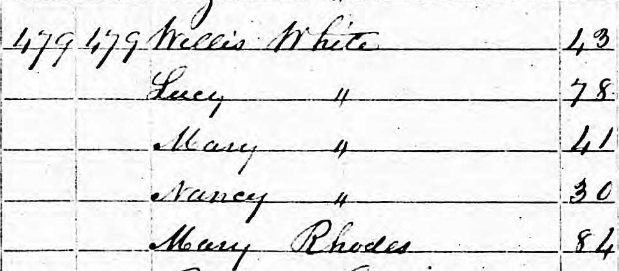 479 479 Willis White 43
Lucy " 78
Mary " 41
Nancy " 30
Mary Rhodes 84